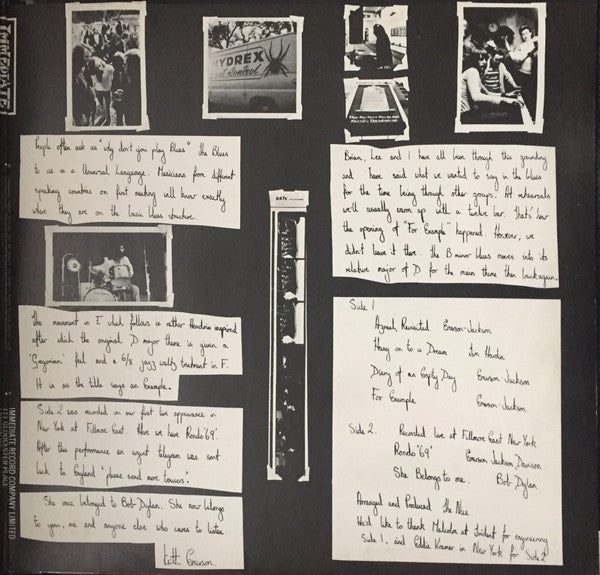 IMMEDIATE
HYDREX
Pest Control
People often ask us "why don't you play Blues" the Blues
to us is a Universal Language. Musicians from different
speaking countries on first meeting will know exactly
where they are on the basic blues structure.
The movement in E which follows is rather Hendrix inspired
after which the original D major theme is given a
'Gregorian' feel and a 6/8 jazz waltz treatment in F.
It is as the title says an Example.
Side 2 was recorded on our first live appearance in
New York at Fillmore East. Here we have Rondo '69'.
After this performance an urgent telegram was sent
back to England "please send more towers".
She once belonged to Bob Dylan. She now belongs
to you, me and anyone else who cares to listen.
Keith Emerson.
DATE
Brian, Lee and I have all been through this grounding
and have said what we wanted to say in the blues
for the time being through other groups. At rehearsals
we'll usually warm up with a twelve bar. that's how
the opening of "For Example" happened. However, we
didn't leave it there. the B minor blues moves into its
relative major of D for the main theme then back again.
Side 1
Azrael Revisited Emerson-Jackson
Hang on to a Dream Tim Hardin
Diary of an Empty Day Emerson-Jackson
For Example Emerson-Jackson
Side 2. Recorded live at Fillmore East New York
Rondo '69' Emerson Jackson Davison
She Belongs to me. Bob Dylan
Arranged and Produced the Nice
We'd like to thank Malcolm at Trident for engineering
Side 1, and Eddie Kramer in New York for Side 2
IMMEDIATE RECORD COMPANY LIMITED
GLOUCESTER PLACE